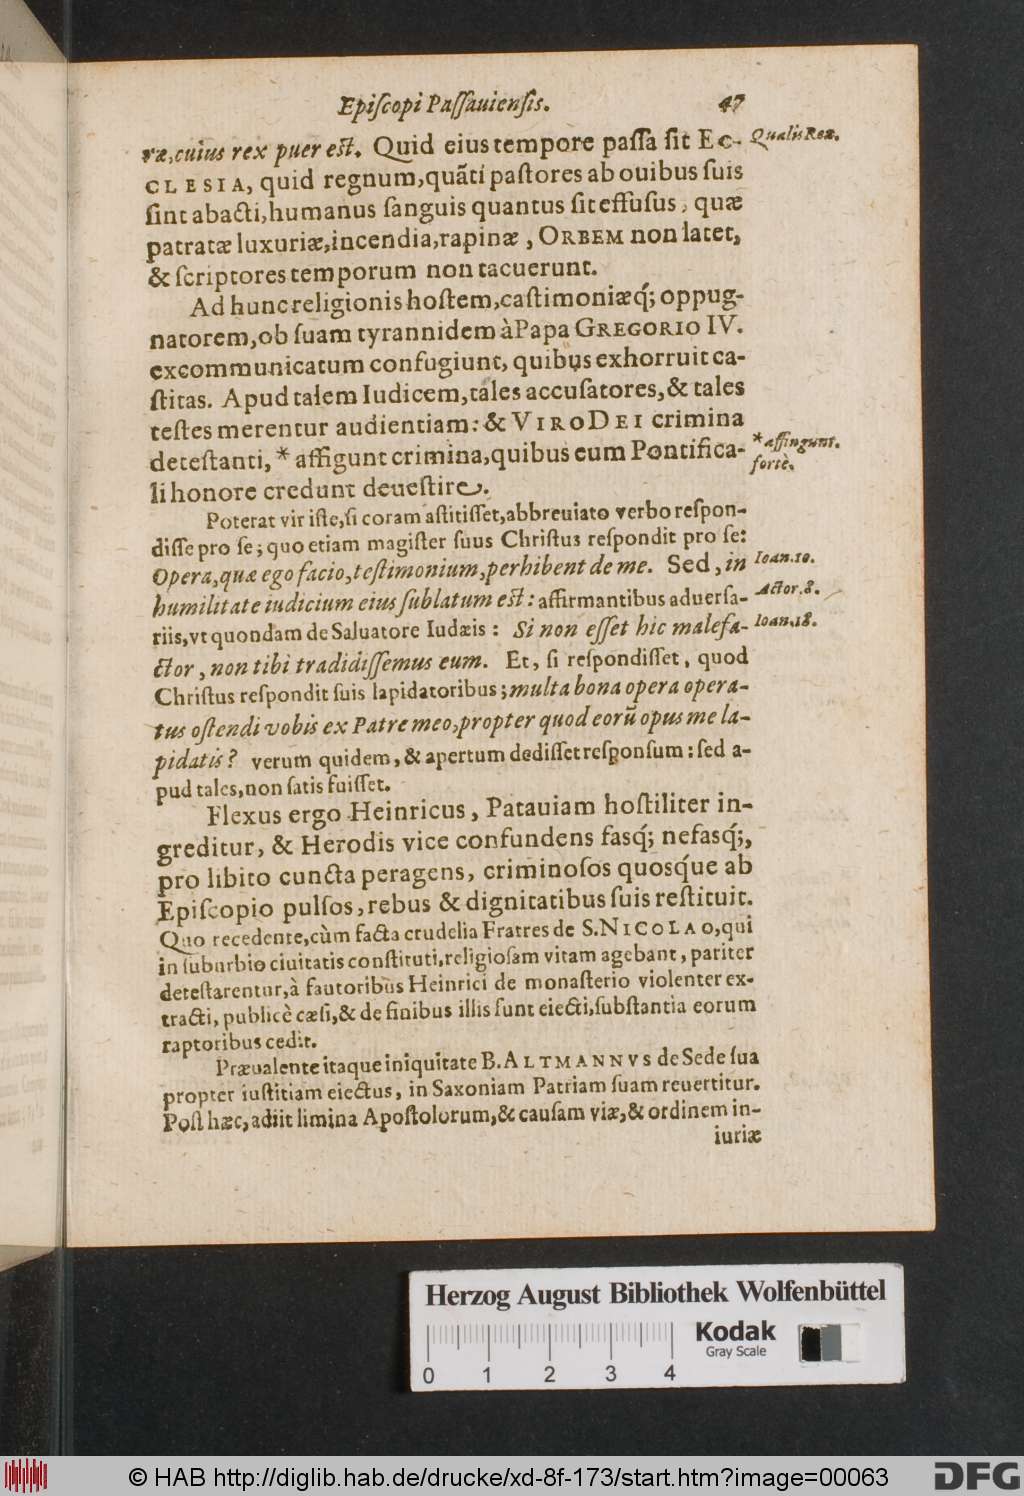 Episcopi Passauiensis. 47
ræ, cuius rex puer est. Quid eius tempore passa sit Ec- Qualis Rex.
CLESIA, quid regnum, quãti pastores ab ouibus suis
sint abacti, humanus sanguis quantus sit effusus, quæ
patratæ luxuriæ, incendia, rapinæ, ORBEM non latet,
& scriptores temporum non tacuerunt.
Ad hunc religionis hostem, castimoniæq́; oppug-
natorem, ob suam tyrannidem à Papa GREGORIO IV.
excommunicatum confugiunt, quibus exhorruit ca-
stitas. Apud talem Iudicem, tales accusatores, & tales
testes merentur audientiam: & VIRO DEI crimina
detestanti, * affigunt crimina, quibus eum Pontifica- * affingunt.
li honore credunt deuestire. fortè.
Poterat vir iste, si coram astitisset, abbreuiato verbo respon-
disse pro se; quo etiam magister suus Christus respondit pro se:
Opera, quæ ego facio, testimonium, perhibent de me. Sed, in Ioan.10.
humilitate iudicium eius sublatum est: affirmantibus aduersa- Actor.8.
riis, vt quondam de Saluatore Iudæis: Si non esset hic malefa- Ioan.18.
ctor, non tibi tradidissemus eum. Et, si respondisset, quod
Christus respondit suis lapidatoribus; multa bona opera opera-
tus ostendi vobis ex Patre meo, propter quod eorũ opus me la-
pidatis? verum quidem, & apertum dedisset responsum: sed a-
pud tales, non satis fuisset.
Flexus ergo Heinricus, Patauiam hostiliter in-
greditur, & Herodis vice confundens fasq́; nefasq́;,
pro libito cuncta peragens, criminosos quosq́ue ab
Episcopio pulsos, rebus & dignitatibus suis restituit.
Quo recedente, cùm facta crudelia Fratres de S. NICOLAO, qui
in suburbio ciuitatis constituti, religiosam vitam agebant, pariter
detestarentur, à fautoribus Heinrici de monasterio violenter ex-
tracti, publicè cæsi, & de finibus illis sunt eiecti, substantia eorum
raptoribus cedit.
Præualente itaque iniquitate B. ALTMANNVS de Sede sua
propter iustitiam eiectus, in Saxoniam Patriam suam reuertitur.
Post hæc, adiit limina Apostolorum, & causam viæ, & ordinem in-
iuriæ
Herzog August Bibliothek Wolfenbüttel
Kodak
Gray Scale
0 1 2 3 4
© HAB http://diglib.hab.de/drucke/xd-8f-173/start.htm?image=00063 DFG